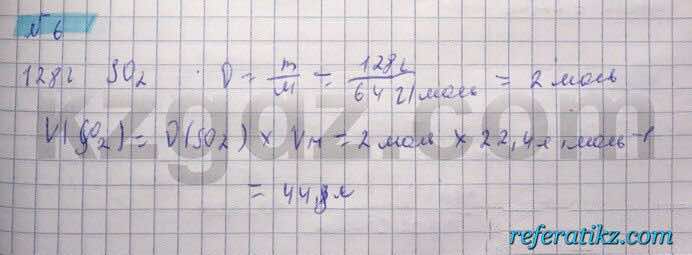 №6
128г SO₂ ϑ = m/M = 128г/64 г/моль = 2 моль
V(SO₂) = ϑ(SO₂) × Vм = 2 моль × 22,4л·моль⁻¹
= 44,8л
kzgdz.com
referatikz.com